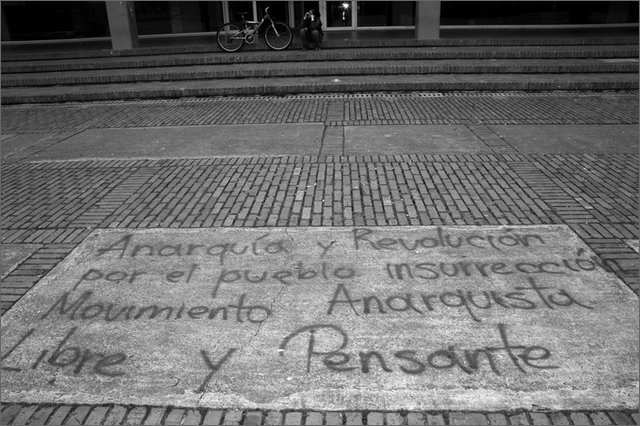 Anarquía y Revolución
por el pueblo insurrección
Movimiento Anarquista
Libre y Pensante